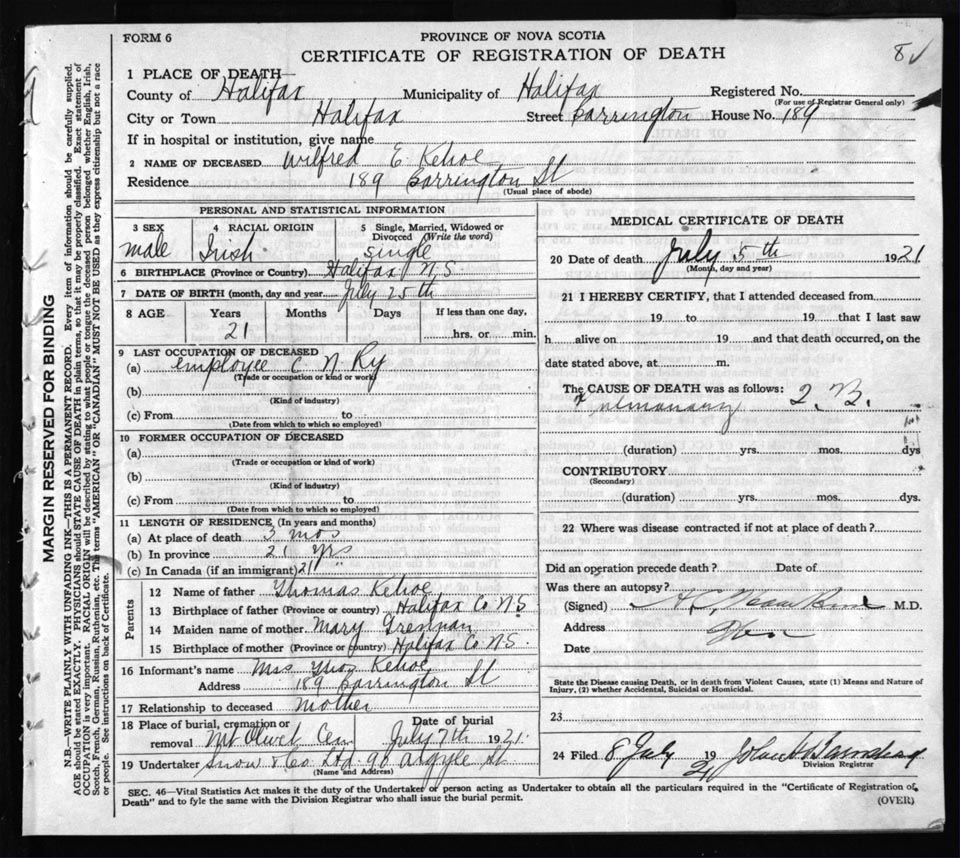 FORM 6
PROVINCE OF NOVA SCOTIA
CERTIFICATE OF REGISTRATION OF DEATH
8
1 PLACE OF DEATH—
County of Halifax Municipality of Halifax Registered No.
(For use of Registrar General only)
City or Town Halifax Street Barrington House No. 189
If in hospital or institution, give name
2 NAME OF DECEASED Wilfred E. Kehoe
Residence 189 Barrington St
(Usual place of abode)
PERSONAL AND STATISTICAL INFORMATION
3 SEX 4 RACIAL ORIGIN 5 Single, Married, Widowed or Divorced (Write the word)
male Irish Single
6 BIRTHPLACE (Province or Country) Halifax N.S.
7 DATE OF BIRTH (month, day and year) July 25th
8 AGE Years Months Days If less than one day,
21 hrs. or min.
9 LAST OCCUPATION OF DECEASED
(a) employee C N Ry
(Trade or occupation or kind of work)
(b)
(Kind of industry)
(c) From to
(Date from which to which so employed)
10 FORMER OCCUPATION OF DECEASED
(a)
(Trade or occupation or kind of work)
(b)
(Kind of industry)
(c) From to
(Date from which to which so employed)
11 LENGTH OF RESIDENCE (In years and months)
(a) At place of death 3 mos
(b) In province 21 yrs
(c) In Canada (if an immigrant) 21 "
Parents
12 Name of father Thomas Kehoe
13 Birthplace of father (Province or country) Halifax Co N S
14 Maiden name of mother Mary
15 Birthplace of mother (Province or country) Halifax Co N.S.
16 Informant's name Mrs Thos Kehoe
Address 189 Barrington St
17 Relationship to deceased mother
18 Place of burial, cremation or removal Mt Olivet Cem Date of burial July 7th 1921.
19 Undertaker Snow & Co Ltd. 90 Argyle St
(Name and Address)
MEDICAL CERTIFICATE OF DEATH
20 Date of death July 5th 1921
(Month, day and year)
21 I HEREBY CERTIFY, that I attended deceased from
19 to 19 that I last saw
h alive on 19 and that death occurred, on the
date stated above, at m.
The CAUSE OF DEATH was as follows: T. B.
Pulmonary
(duration) yrs. mos. dys
CONTRIBUTORY
(Secondary)
(duration) yrs. mos. dys.
22 Where was disease contracted if not at place of death?
Did an operation precede death? Date of
Was there an autopsy?
(Signed) M.D.
Address
Date
State the Disease causing Death, or in death from Violent Causes, state (1) Means and Nature of
Injury, (2) whether Accidental, Suicidal or Homicidal.
23
24 Filed 8 July 19 21
Division Registrar
SEC. 46—Vital Statistics Act makes it the duty of the Undertaker or person acting as Undertaker to obtain all the particulars required in the "Certificate of Registration of
Death" and to fyle the same with the Division Registrar who shall issue the burial permit.
(OVER)
MARGIN RESERVED FOR BINDING
N.B.—WRITE PLAINLY WITH UNFADING INK—THIS IS A PERMANENT RECORD. Every item of information should be carefully supplied.
AGE should be stated EXACTLY. PHYSICIANS should STATE CAUSE OF DEATH in plain terms, so that it may be properly classified. Exact statement of
OCCUPATION is very important. RACIAL ORIGIN will be described by stating to what people or tongue the deceased person belonged whether English, Irish,
Scotch, French, German, Russian, Ruthenian, etc. The terms "AMERICAN" OR "CANADIAN" MUST NOT BE USED as they express citizenship but not a race
or people. See instructions on back of Certificate.